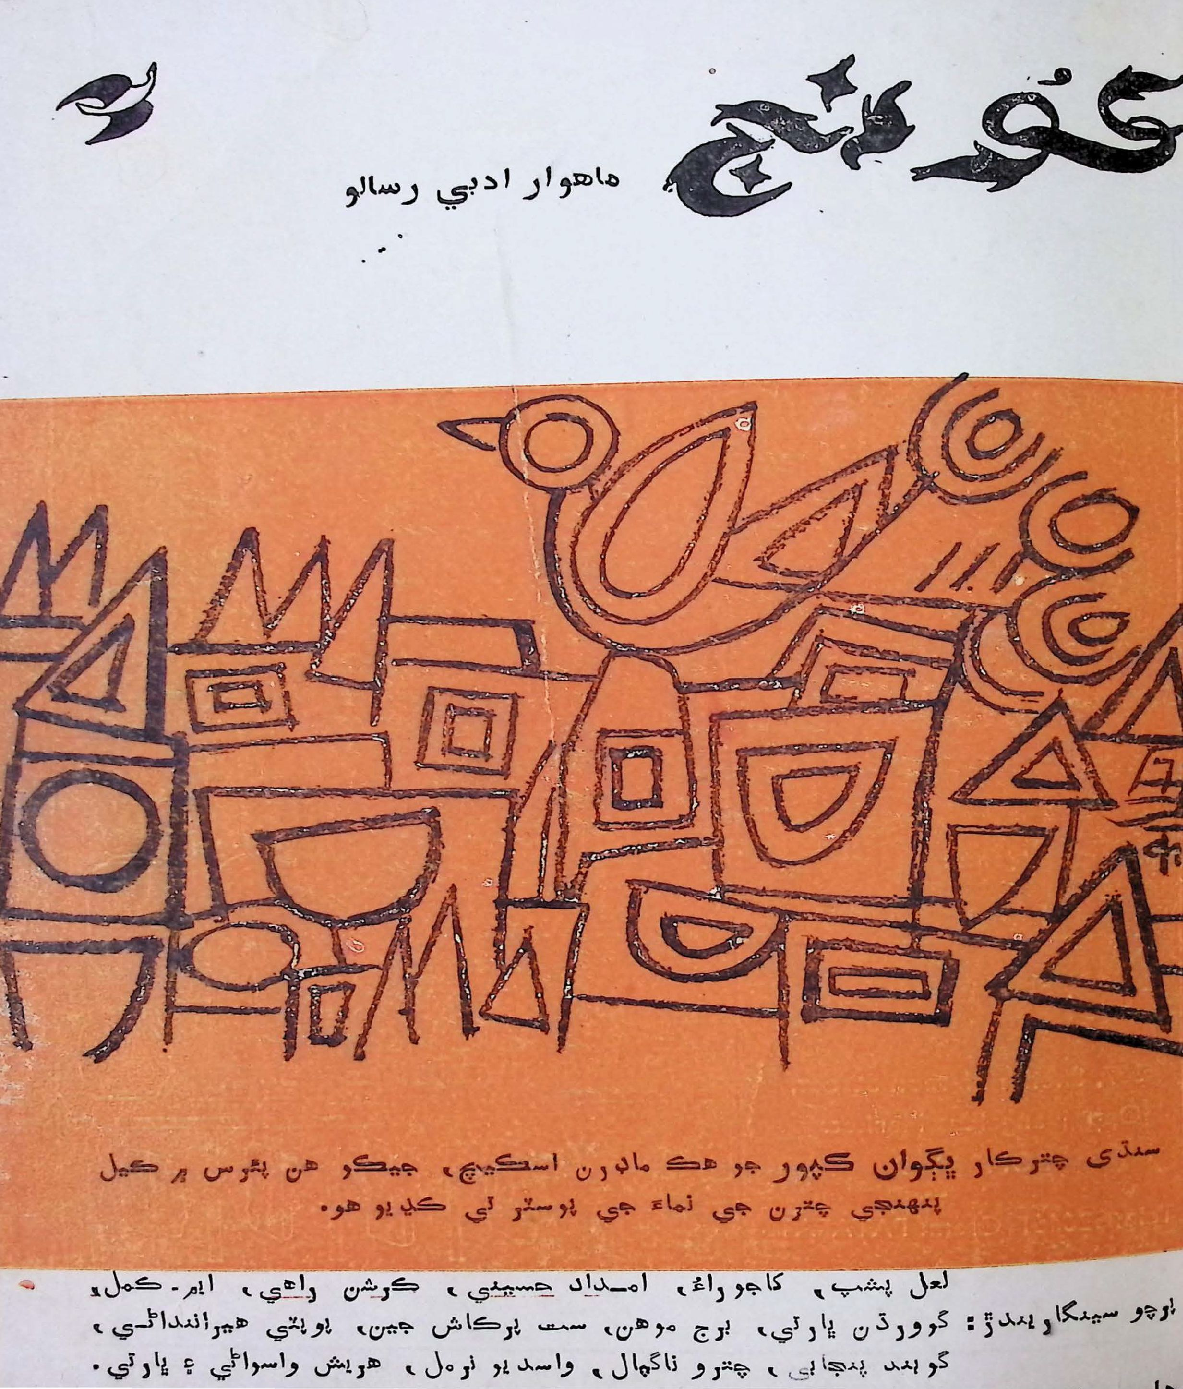 ڪُونج
ماهوار ادبي رسالو
سنڌي چترڪار ڀڳوان ڪپور جو هڪ ماڊرن اسڪيچ، جيڪو هن پئرس ۾ ڪيل
پنهنجي چترن جي نماءَ جي پوسٽر تي ڪڍيو هو.
لعل پشپ، کاجوراڻ، امداد حسيني، ڪرشن راهي، ايم۔ ڪمل،
پرچو سينگاريندڙ: گوورڌن ڀارتي، برج موهن، ست پرڪاش جين، پوپٽي هيرانداڻي،
گوبند پنجابي، چترو ناگپال، واسديو نرمل، هريش واسواڻي ۽ ڀارتي.